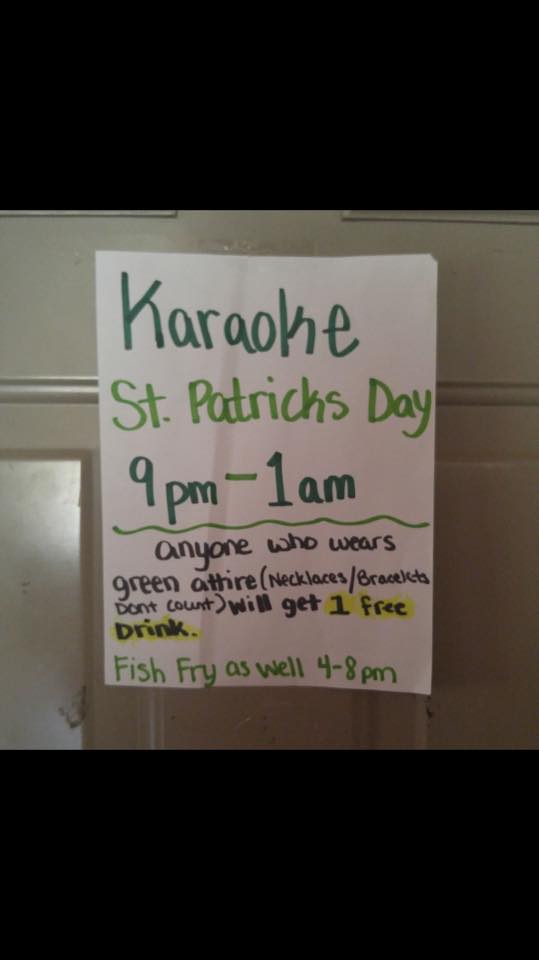 Karaoke
St. Patricks Day
9pm - 1am
anyone who wears
green attire (Necklaces/Bracelets
Dont count) will get 1 free
Drink.
Fish Fry as well 4-8pm